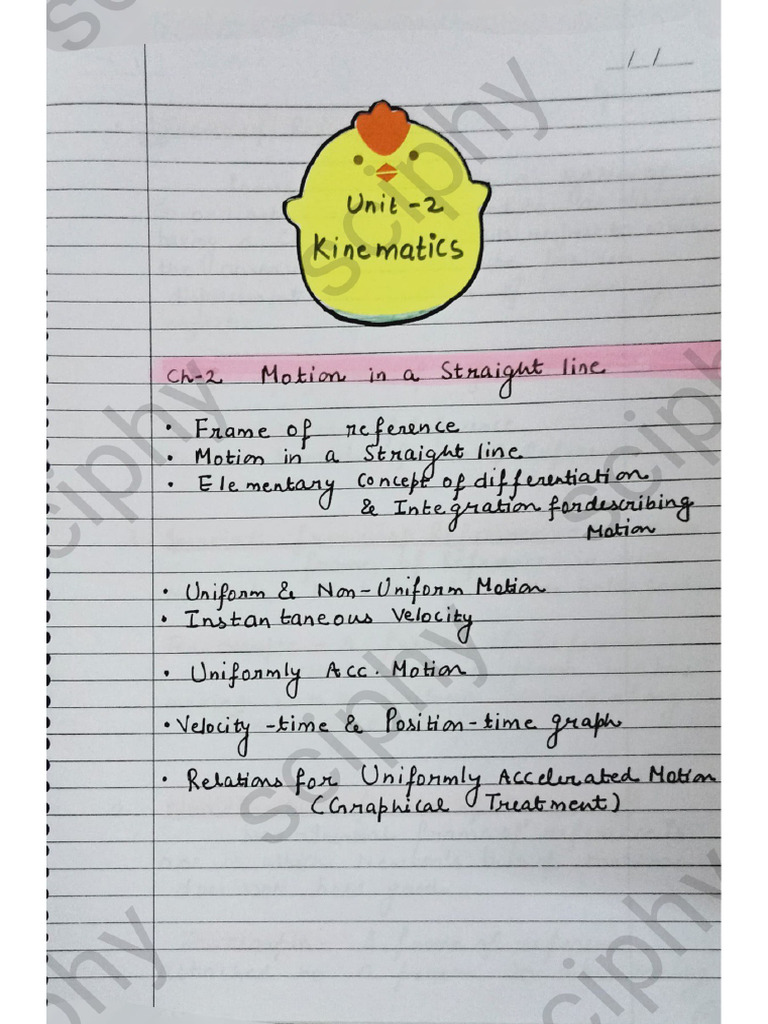 _/_/__
Unit -2
Kinematics
Ch-2 Motion in a Straight line
• Frame of reference
• Motion in a Straight line
• Elementary Concept of differentiation
& Integration for describing
Motion
• Uniform & Non-Uniform Motion
• Instantaneous Velocity
• Uniformly Acc. Motion
• Velocity -time & Position-time graph
• Relations for Uniformly Accelerated Motion
(Graphical Treatment)
sciphy
sciphy
sciphy
sciphy
sciphy
sciphy
sciphy